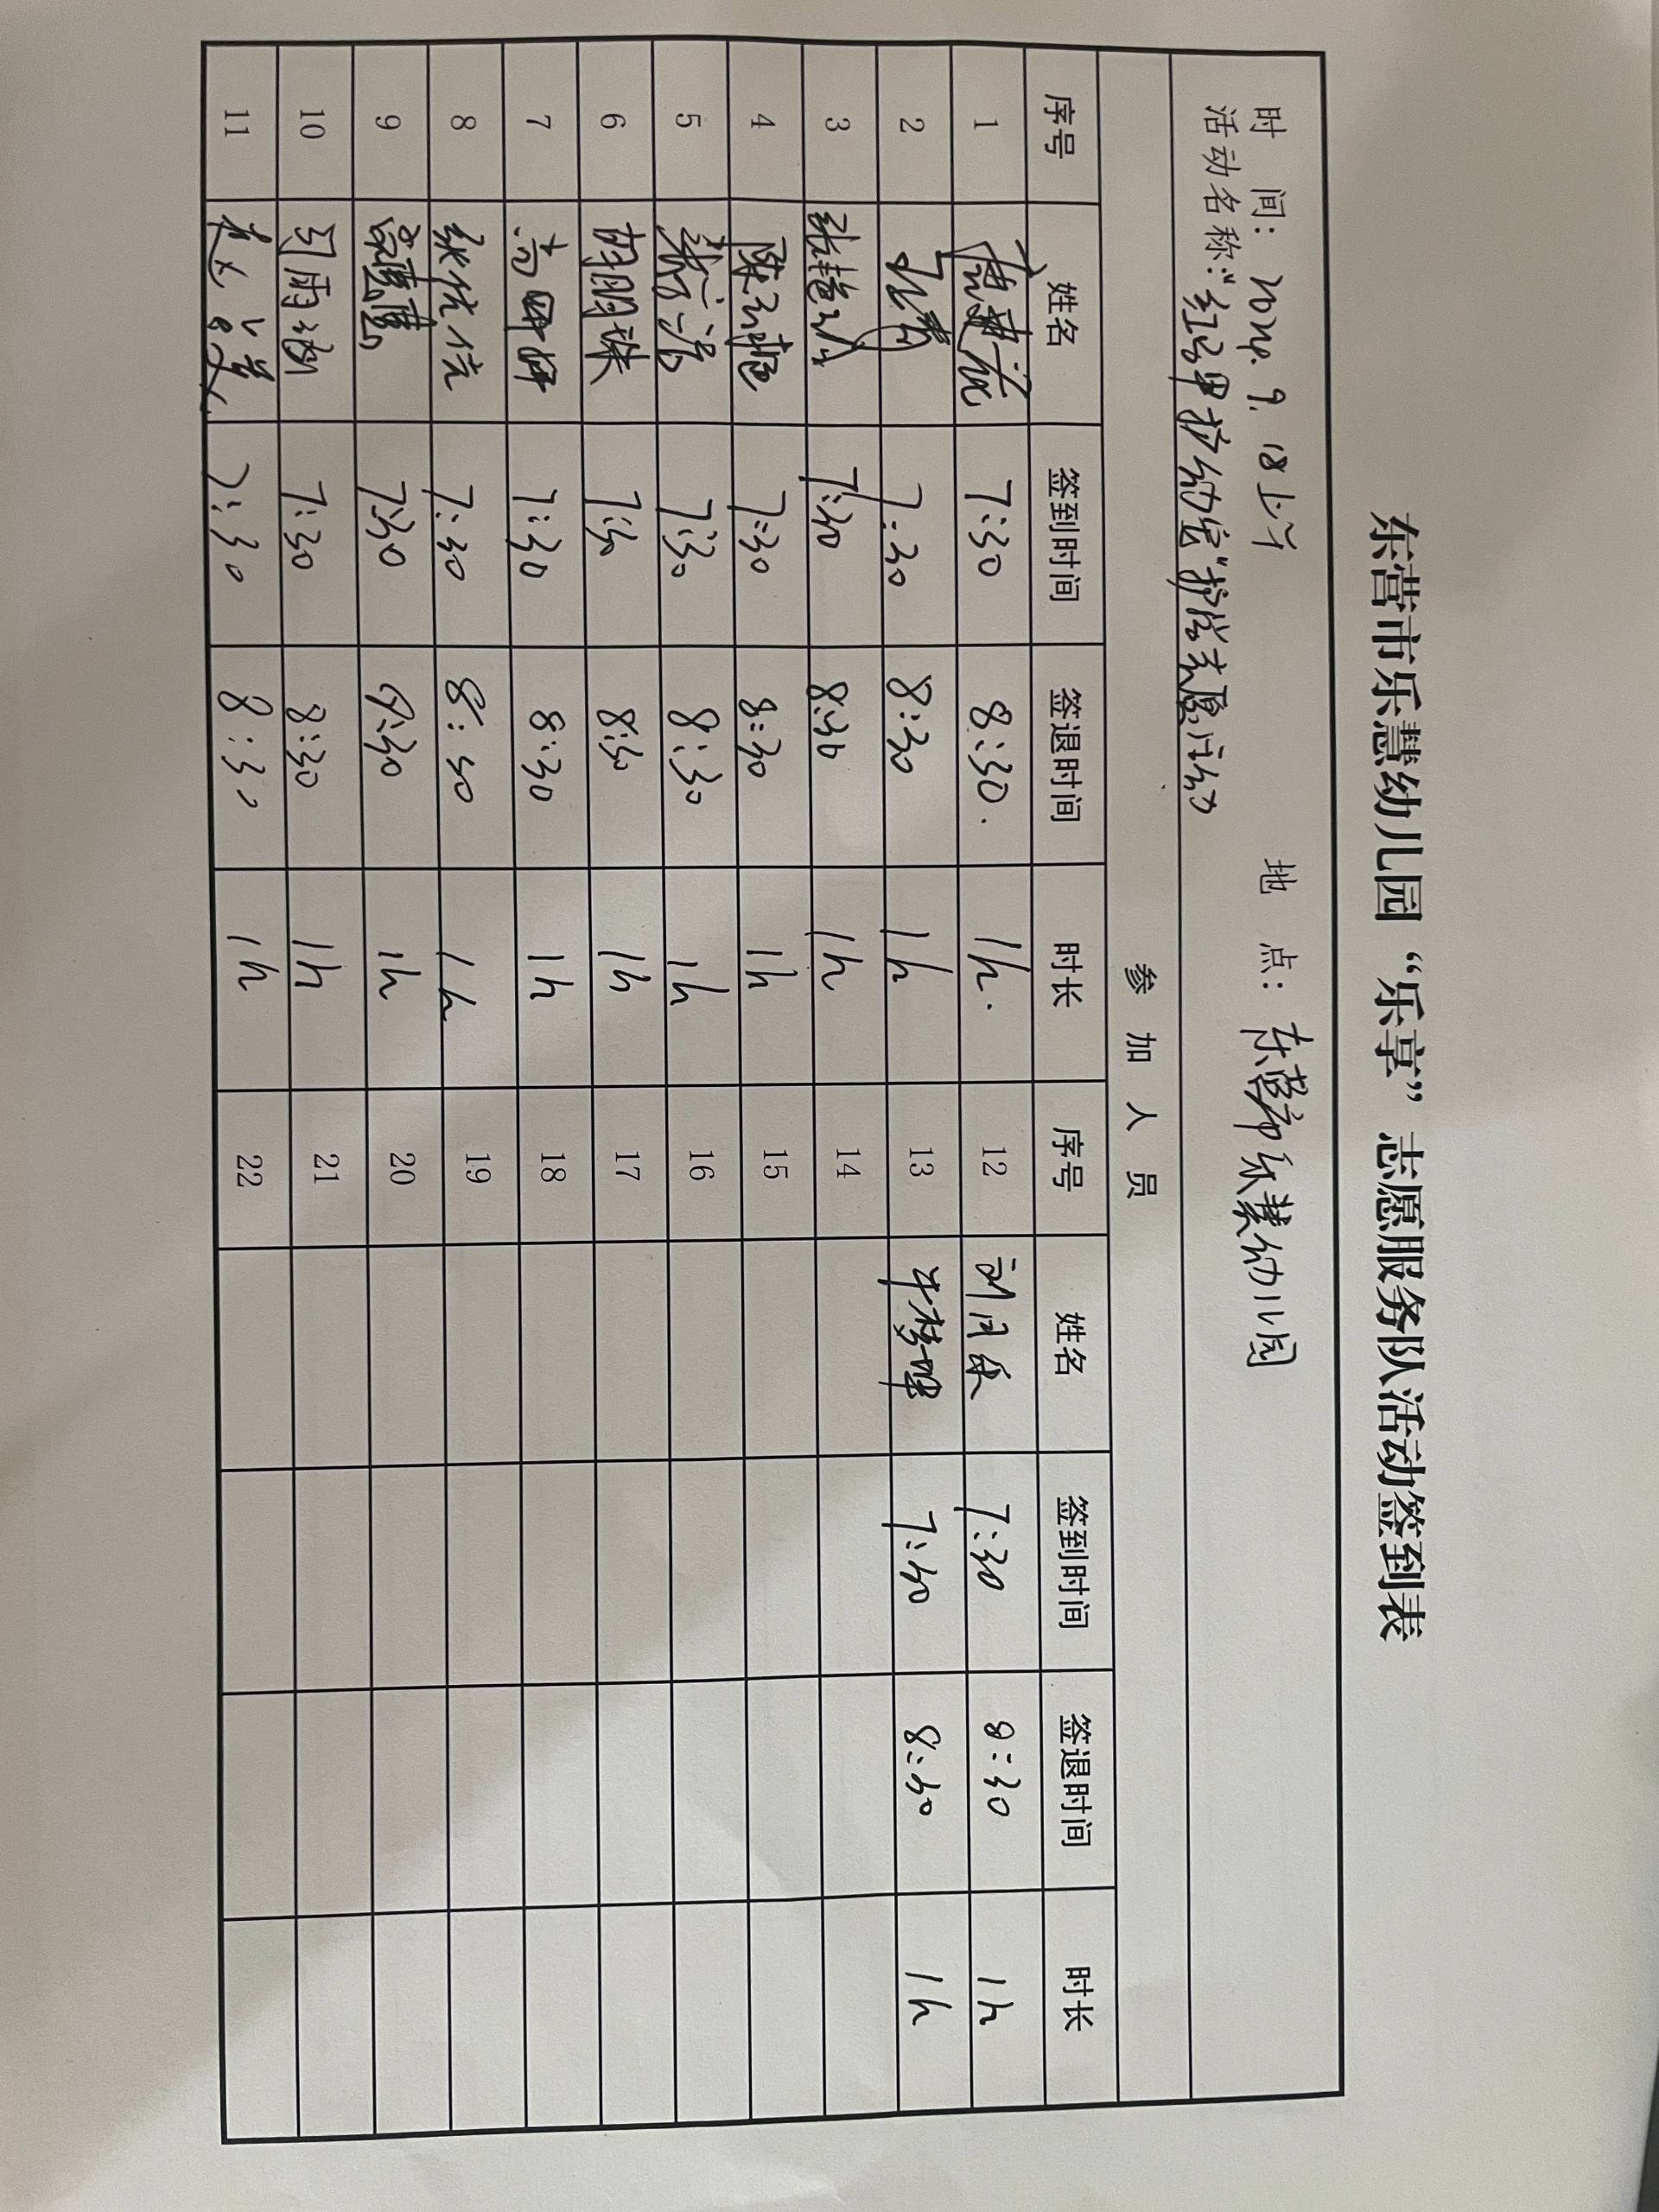 东营市乐慧幼儿园“乐享”志愿服务队活动签到表
时 间：2024. 9. 18上午 地 点：东营市乐慧幼儿园
活动名称：“红马甲护幼安”护学志愿活动
参 加 人 员
序号 姓名 签到时间 签退时间 时长 序号 姓名 签到时间 签退时间 时长
1 7:30 8:30. 1h. 12 7:30 8:30 1h
2 7:30 8:30 1h 13 7:30 8:30 1h
3 7:30 8:30 1h 14
4 7:30 8:30 1h 15
5 7:30 8:30 1h 16
6 胡明珠 7:30 8:30 1h 17
7 7:30 8:30 1h 18
8 7:30 8:30 1h 19
9 7:30 8:30 1h 20
10 7:30 8:30 1h 21
11 7:30 8:30 1h 22